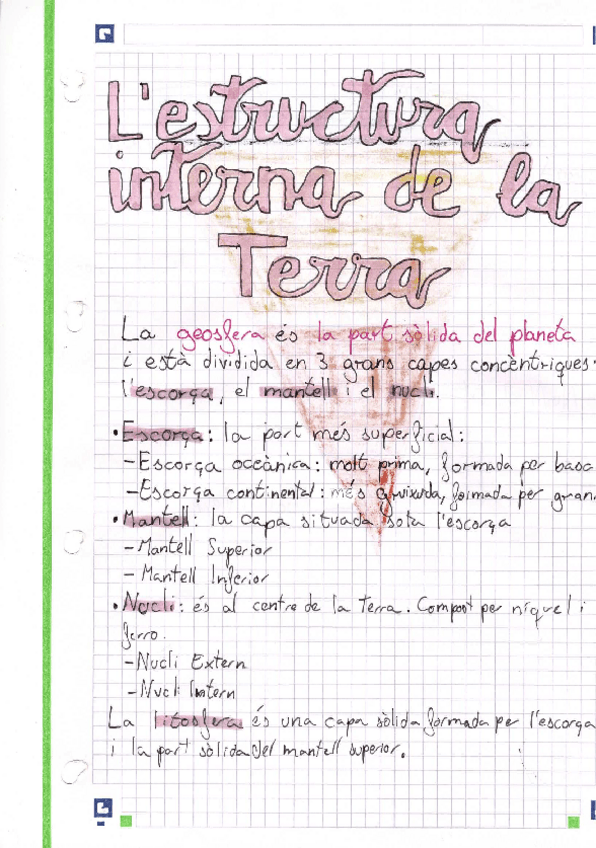 L'estructura
interna de la
Terra
La geosfera és la part sòlida del planeta
i està dividida en 3 grans capes concèntriques:
l'escorça, el mantell i el nucli.
•Escorça: la part més superficial:
-Escorça oceànica: molt prima, formada per basa
-Escorça continental: més gruixuda, formada per gran
•Mantell: la capa situada sota l'escorça
-Mantell Superior
-Mantell Inferior
•Nucli: és al centre de la Terra. Compost per níquel i
ferro.
-Nucli Extern
-Nucli Intern
La litosfera és una capa sòlida formada per l'escorça
i la part sòlida del mantell superior.